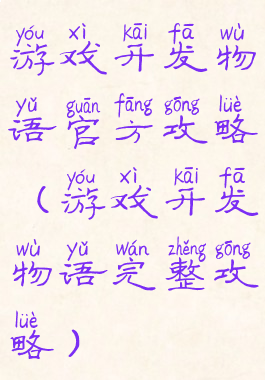 yóu xì kāi fā wù
游戏开发物
yǔ guān fāng gōng lüè
语官方攻略
yóu xì kāi fā
（游戏开发
wù yǔ wán zhěng gōng
物语完整攻
lüè
略）